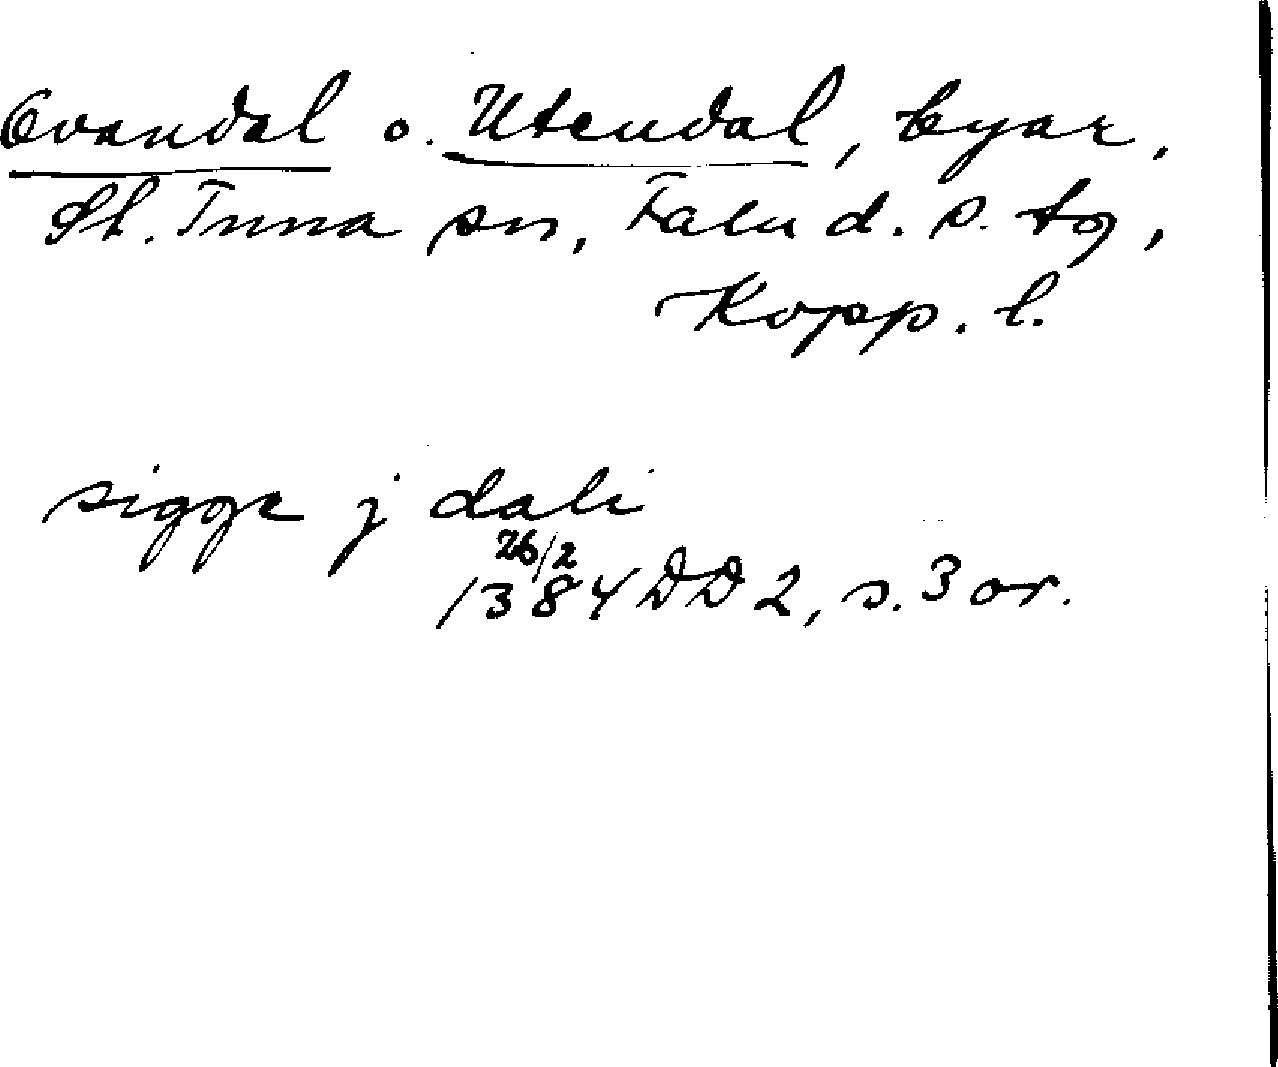 Ovandal o. Utendal, byar,
St. Tuna sn, Falu d. s. tg,
Kopp. l.
sigge j dali
26/2
1384 DD 2, s. 3 or.